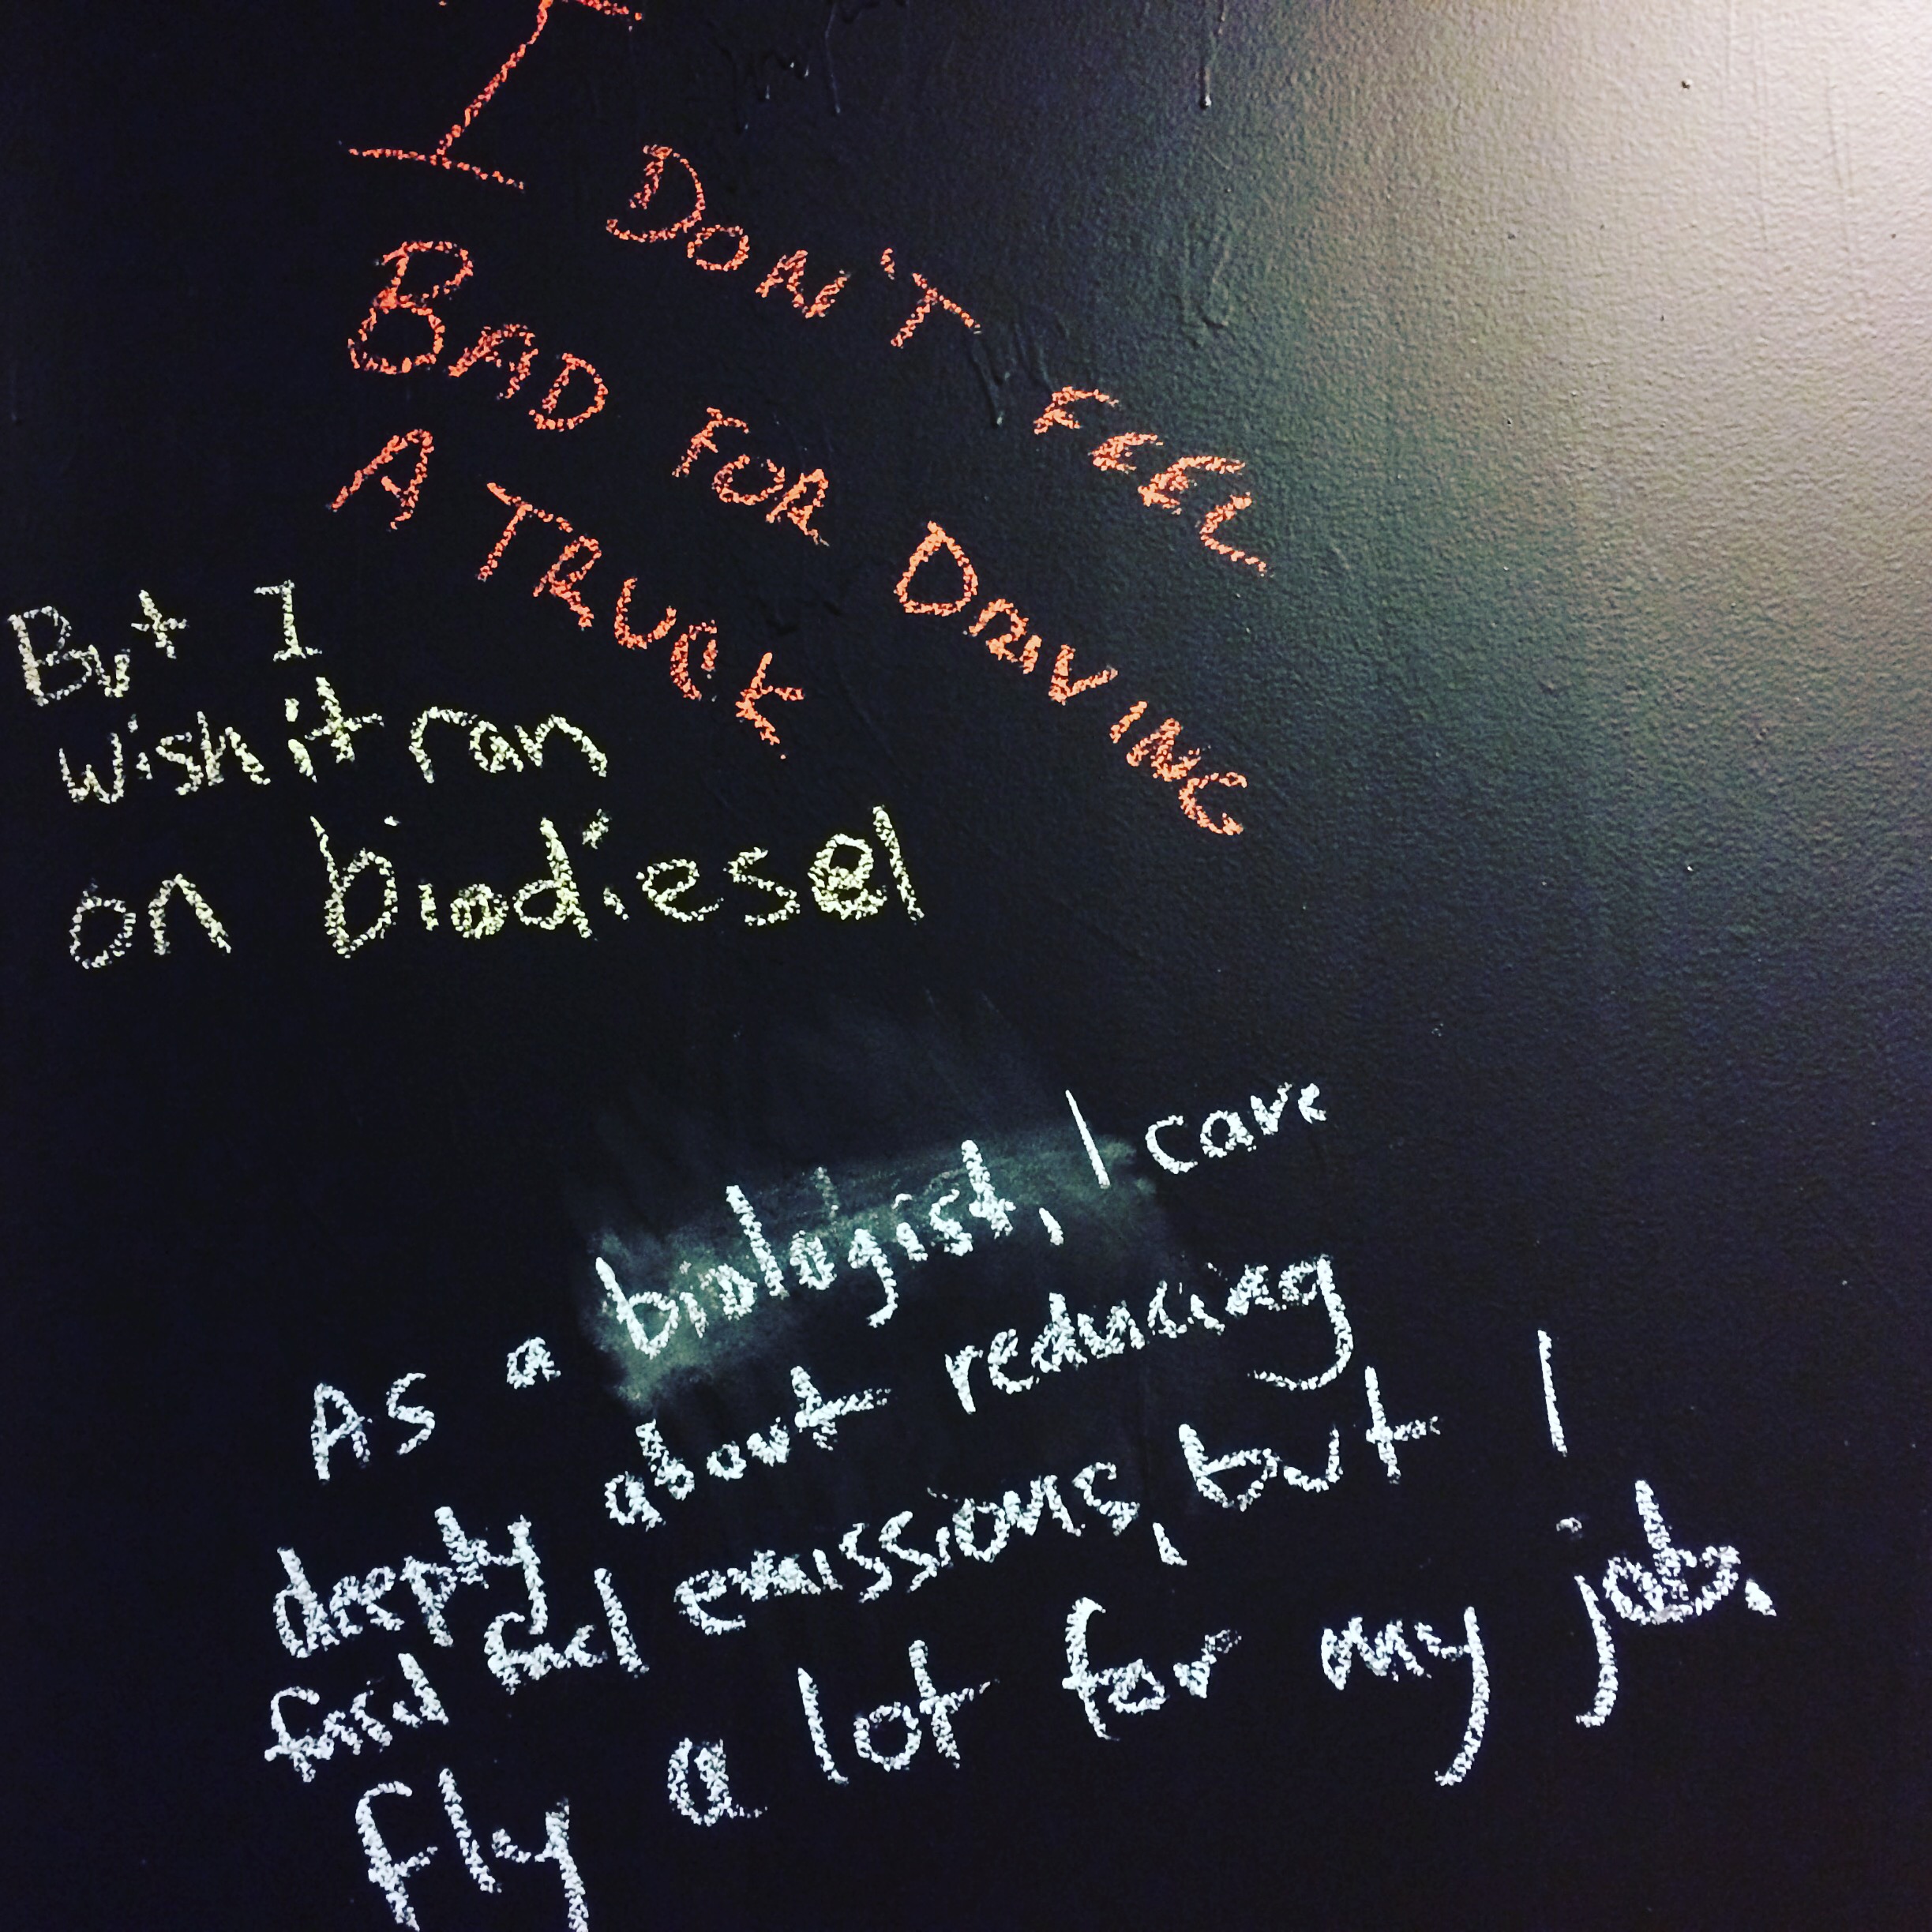 I DON'T FEEL
BAD FOR DRIVING
A TRUCK
But I
wish it ran
on biodiesel
As a biologist, I care
deeply about reducing
fossil fuel emissions, but I
fly a lot for my job.